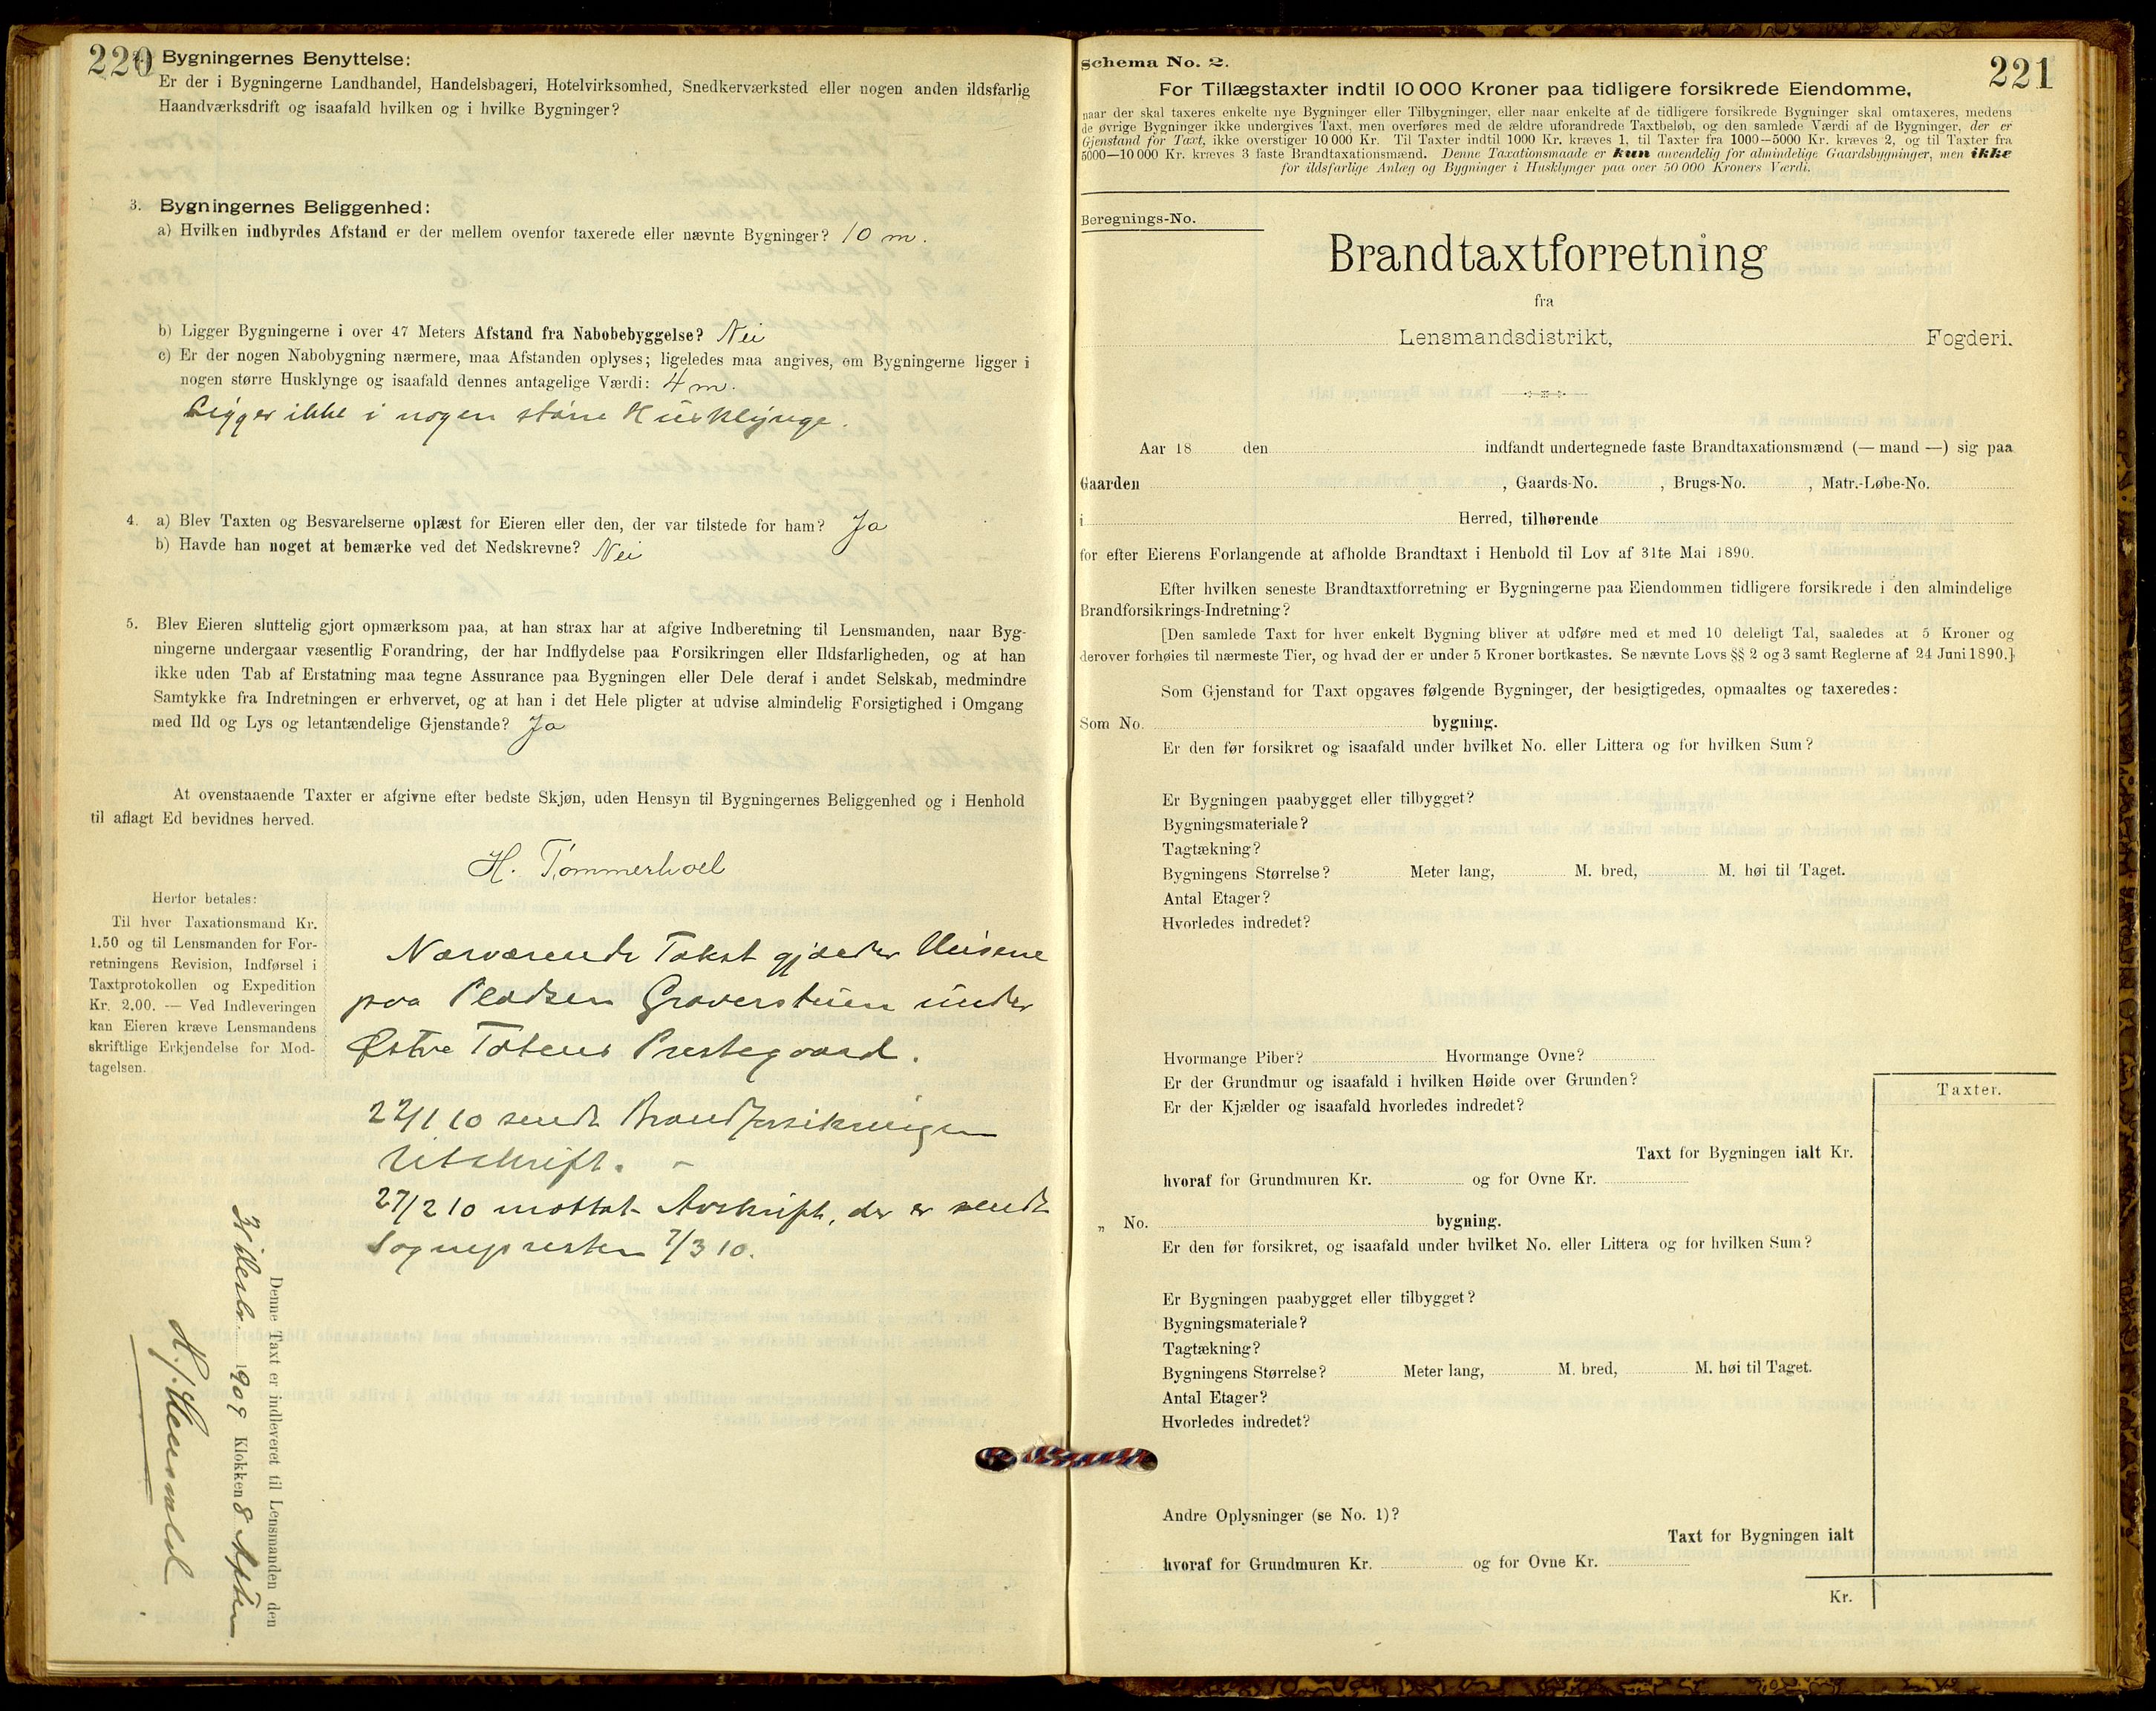 220
Bygningernes Benyttelse:
Er der i Bygningerne Landhandel, Handelsbageri, Hotelvirksomhed, Snedkerværksted eller nogen anden ildsfarlig
Haandværksdrift og isaafald hvilken og i hvilke Bygninger?
3. Bygningernes Beliggenhed:
a) Hvilken indbyrdes Afstand er der mellem ovenfor taxerede eller nævnte Bygninger? 10 m.
b) Ligger Bygningerne i over 47 Meters Afstand fra Nabobebyggelse? Nei
c) Er der nogen Nabobygning nærmere, maa Afstanden oplyses; ligeledes maa angives, om Bygningerne ligger i
nogen større Husklynge og isaafald dennes antagelige Værdi: 4 m.
Ligger ikke i nogen større Husklynge.
4. a) Blev Taxten og Besvarelserne oplæst for Eieren eller den, der var tilstede for ham? Ja
b) Havde han noget at bemærke ved det Nedskrevne? Nei
5. Blev Eieren sluttelig gjort opmærksom paa, at han strax har at afgive Indberetning til Lensmanden, naar Byg-
ningerne undergaar væsentlig Forandring, der har Indflydelse paa Forsikringen eller Ildsfarligheden, og at han
ikke uden Tab af Erstatning maa tegne Assurance paa Bygningen eller Dele deraf i andet Selskab, medmindre
Samtykke fra Indretningen er erhvervet, og at han i det Hele pligter at udvise almindelig Forsigtighed i Omgang
med Ild og Lys og letantændelige Gjenstande? Ja
At ovenstaaende Taxter er afgivne efter bedste Skjøn, uden Hensyn til Bygningernes Beliggenhed og i Henhold
til aflagt Ed bevidnes herved.
H. Tømmerhoel
Herfor betales:
Til hver Taxationsmand Kr.
1.50 og til Lensmanden for For-
retningens Revision, Indførsel i
Taxtprotokollen og Expedition
Kr. 2.00. — Ved Indleveringen
kan Eieren kræve Lensmandens
skriftlige Erkjendelse for Mod-
tagelsen.
Nærværende Takst gjælder Husene
paa Pladsen Graverstuen under
Østre Totens Prestegaard.
22/1 10 sendt Brandforsikringen
Utskrift. –
27/2 10 mottat Avskrift, der er sendt
Sognepresten 7/3 10.
Denne Taxt er indleveret til Lensmanden den
1909 Klokken 8 Aften.
Schema No. 2.
221
For Tillægstaxter indtil 10 000 Kroner paa tidligere forsikrede Eiendomme,
naar der skal taxeres enkelte nye Bygninger eller Tilbygninger, eller naar enkelte af de tidligere forsikrede Bygninger skal omtaxeres, medens
de øvrige Bygninger ikke undergives Taxt, men overføres med de ældre uforandrede Taxtbeløb, og den samlede Værdi af de Bygninger, der er
Gjenstand for Taxt, ikke overstiger 10 000 Kr. Til Taxter indtil 1000 Kr. kræves 1, til Taxter fra 1000—5000 Kr. kræves 2, og til Taxter fra
5000—10 000 Kr. kræves 3 faste Brandtaxationsmænd. Denne Taxationsmaade er kun anvendelig for almindelige Gaardsbygninger, men ikke
for ildsfarlige Anlæg og Bygninger i Husklynger paa over 50 000 Kroners Værdi.
Beregnings-No.
Brandtaxtforretning
fra
Lensmandsdistrikt, Fogderi.
Aar 18 den indfandt undertegnede faste Brandtaxationsmænd (— mand —) sig paa
Gaarden , Gaards-No. , Brugs-No. , Matr.-Løbe-No.
i Herred, tilhørende
for efter Eierens Forlangende at afholde Brandtaxt i Henhold til Lov af 31te Mai 1890.
Efter hvilken seneste Brandtaxtforretning er Bygningerne paa Eiendommen tidligere forsikrede i den almindelige
Brandforsikrings-Indretning?
[Den samlede Taxt for hver enkelt Bygning bliver at udføre med et med 10 deleligt Tal, saaledes at 5 Kroner og
derover forhøies til nærmeste Tier, og hvad der er under 5 Kroner bortkastes. Se nævnte Lovs §§ 2 og 3 samt Reglerne af 24 Juni 1890.]
Som Gjenstand for Taxt opgaves følgende Bygninger, der besigtigedes, opmaaltes og taxeredes:
Som No. bygning.
Er den før forsikret og isaafald under hvilket No. eller Littera og for hvilken Sum?
Er Bygningen paabygget eller tilbygget?
Bygningsmateriale?
Tagtækning?
Bygningens Størrelse? Meter lang, M. bred, M. høi til Taget.
Antal Etager?
Hvorledes indredet?
Hvormange Piber? Hvormange Ovne?
Er der Grundmur og isaafald i hvilken Høide over Grunden?
Er der Kjælder og isaafald hvorledes indredet?
Taxter.
Taxt for Bygningen ialt Kr.
hvoraf for Grundmuren Kr. og for Ovne Kr.
„ No. bygning.
Er den før forsikret, og isaafald under hvilket No. eller Littera og for hvilken Sum?
Er Bygningen paabygget eller tilbygget?
Bygningsmateriale?
Tagtækning?
Bygningens Størrelse? Meter lang, M. bred, M. høi til Taget.
Antal Etager?
Hvorledes indredet?
Andre Oplysninger (se No. 1)?
Taxt for Bygningen ialt
hvoraf for Grundmuren Kr. og for Ovne Kr.
Kr.